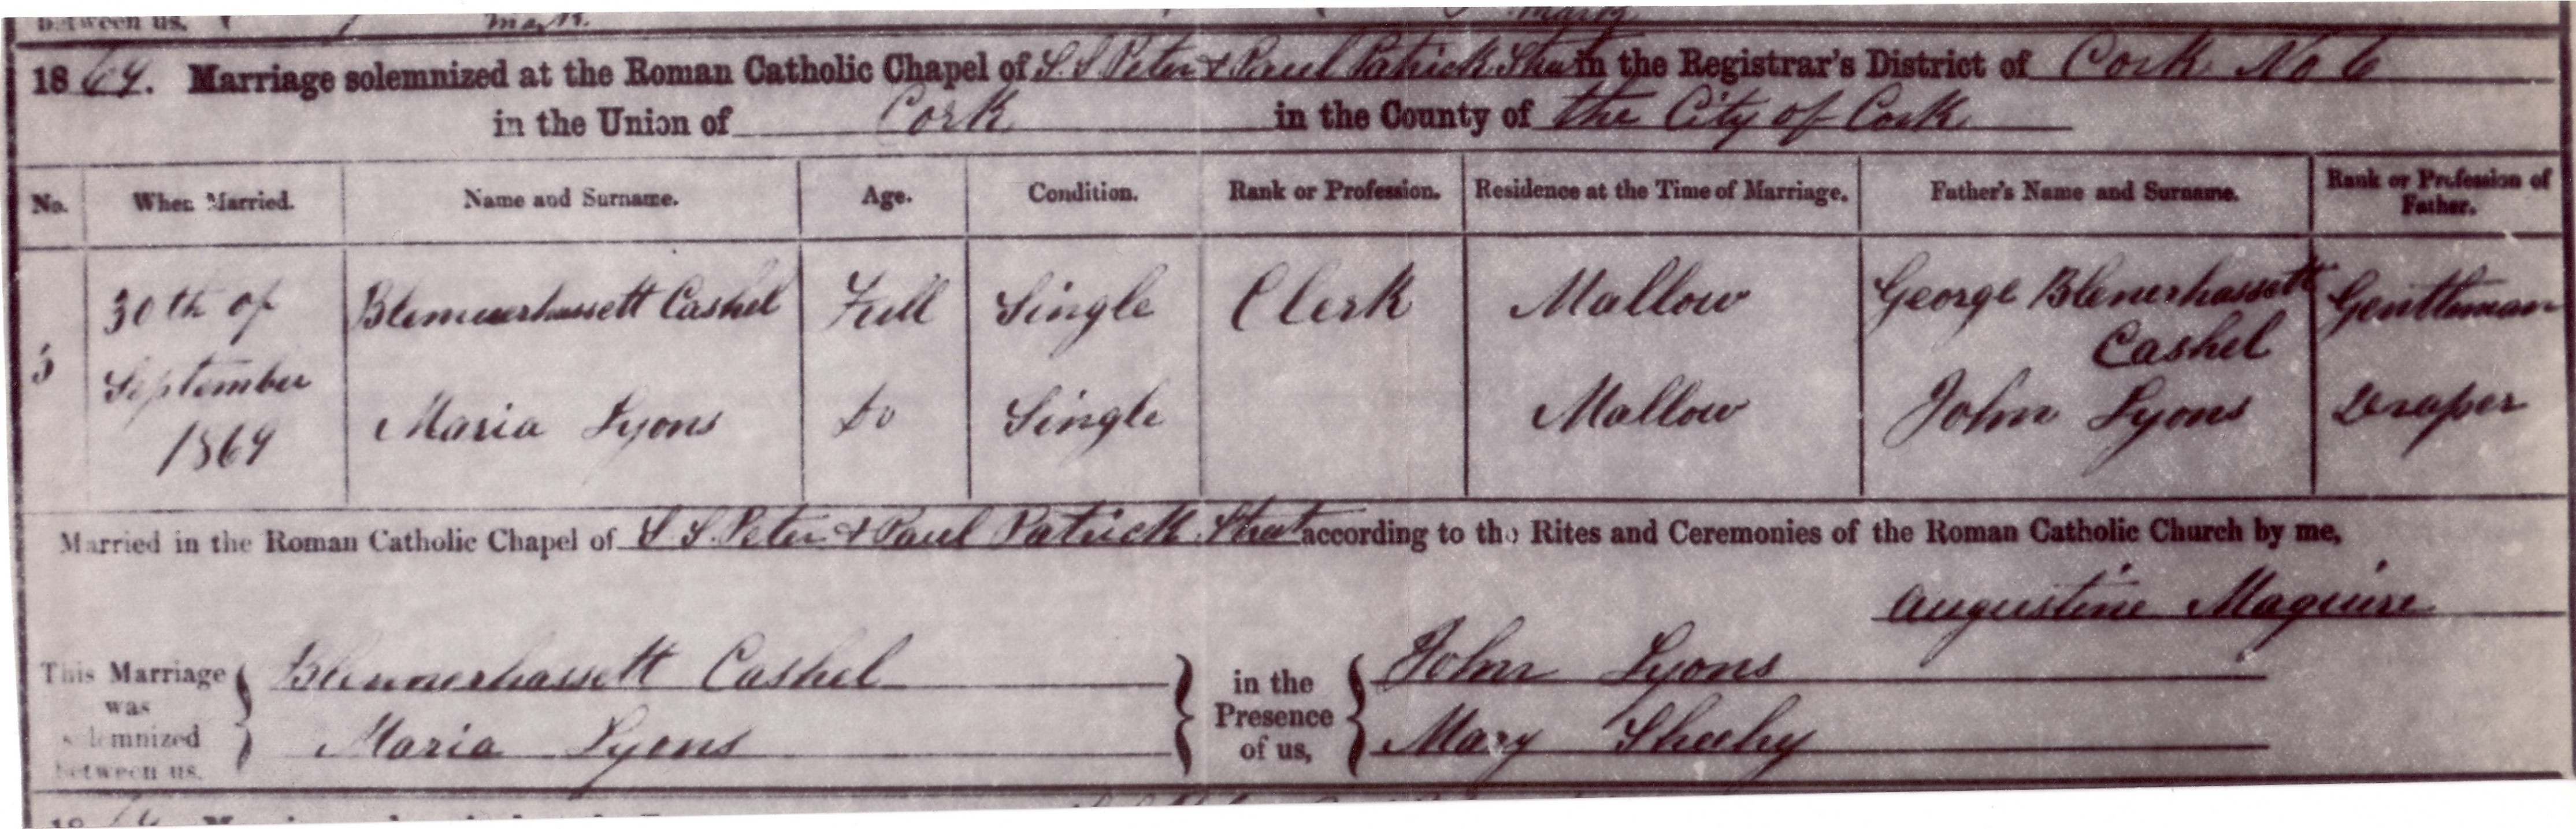 between us, mark. mark
1869. Marriage solemnized at the Roman Catholic Chapel of S.S Peter & Paul Patrick Street in the Registrar's District of Cork No 6
in the Union of Cork in the County of the City of Cork
No. When Married. Name and Surname. Age. Condition. Rank or Profession. Residence at the Time of Marriage. Father's Name and Surname. Rank or Profession of Father.
5 30th of September 1869 Blennerhassett Cashel Full Single Clerk Mallow George Blenerhassett Cashel Gentleman
Maria Lyons Do Single Mallow John Lyons Draper
Married in the Roman Catholic Chapel of S S. Peter & Paul Patrick Street according to the Rites and Ceremonies of the Roman Catholic Church by me,
Augustine Maguire
This Marriage was solemnized between us, Blennerhassett Cashel in the Presence of us, John Lyons
Maria Lyons Mary Sheehy
1869